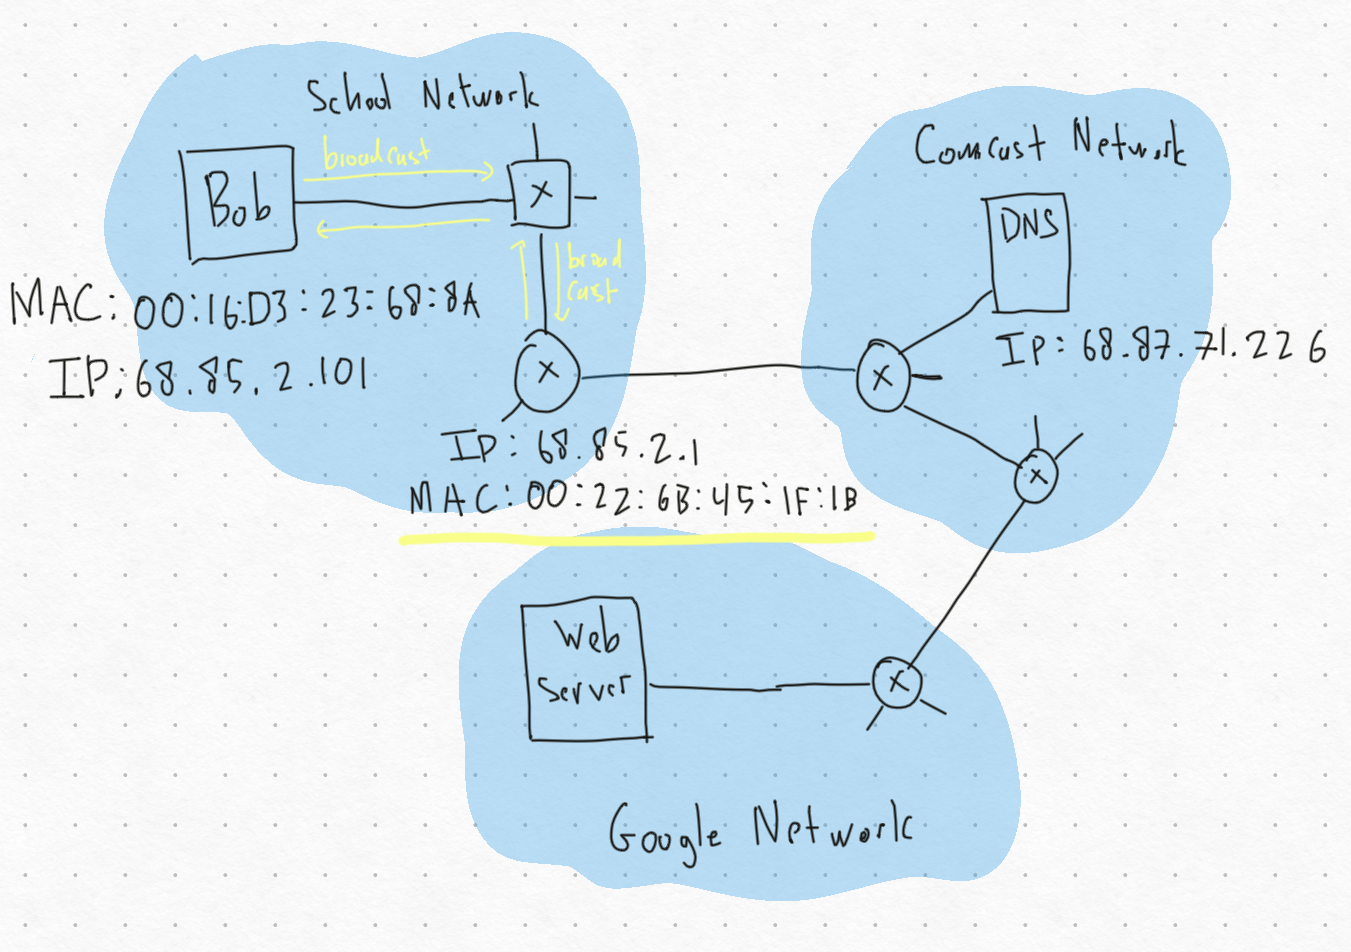 School Network
broadcast
Bob
X
broad
cast
MAC: 00:16:D3:23:68:8A
IP: 68.85.2.101
X
IP: 68.85.2.1
MAC: 00:22:6B:45:1F:1B
Comcast Network
DNS
IP: 68.87.71.226
X
X
Web
Server
X
Google Network